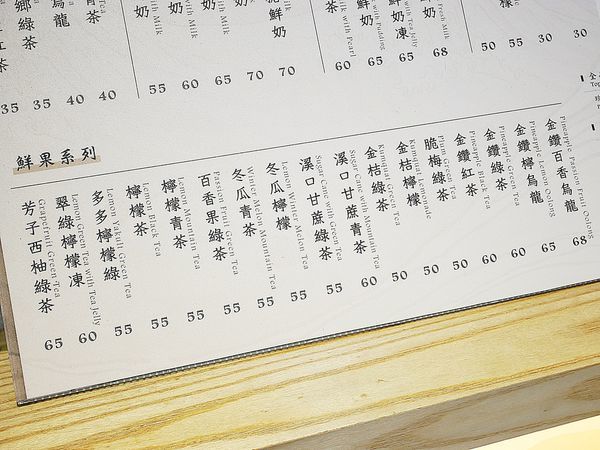 鄉綠茶
35
35
青茶
40
40
奶
with Milk
55
60
奶
with Milk
65
鮮奶
70
70
60
with Pearl
鮮奶
with Pudding
65
鮮奶凍
with Tea Jelly
65
Fresh Milk
68
50
55
30
30
鮮果系列
芳子西柚綠茶
Grapefruit Green Tea
65
翠綠檸檬凍
Lemon Green Tea with Tea Jelly
60
多多檸檬綠
Lemon Yakult Green Tea
55
檸檬茶
Lemon Black Tea
55
檸檬青茶
Lemon Mountain Tea
55
百香果綠茶
Passion Fruit Green Tea
55
冬瓜青茶
Winter Melon Mountain Tea
55
冬瓜檸檬
Lemon Winter Melon
55
溪口甘蔗綠茶
Sugar Cane with Green Tea
55
溪口甘蔗青茶
Sugar Cane with Mountain Tea
60
金桔綠茶
Kumquat Green Tea
50
金桔檸檬
Kumquat Lemonade
50
脆梅綠茶
Plum Green Tea
50
金鑽紅茶
Pineapple Black Tea
60
金鑽綠茶
Pineapple Green Tea
60
金鑽檸烏龍
Pineapple Lemon Oolong
65
金鑽百香烏龍
Pineapple Passion Fruit Oolong
68